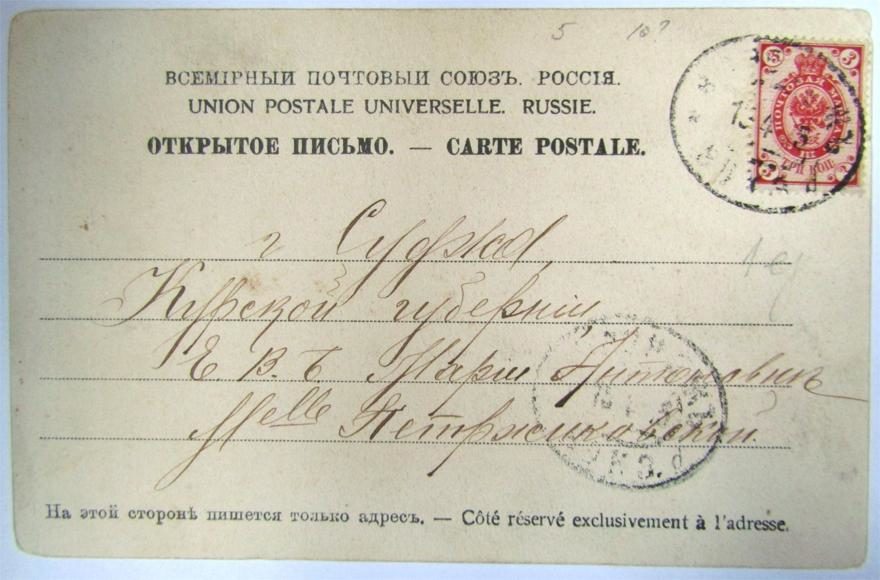 5 10?
ВСЕМІРНЫЙ ПОЧТОВЫЙ СОЮЗЪ. РОССІЯ.
UNION POSTALE UNIVERSELLE. RUSSIE.
ОТКРЫТОЕ ПИСЬМО. — CARTE POSTALE.
3 3
ПОЧТОВАЯ МАРКА
ТРИ КОП.
г Суджа,
Курской губерніи,
Е. В. Б Маріи Антоновнѣ
Melle Петржиковской.
На этой сторонѣ пишется только адресъ. — Côté réservé exclusivement à l'adresse.